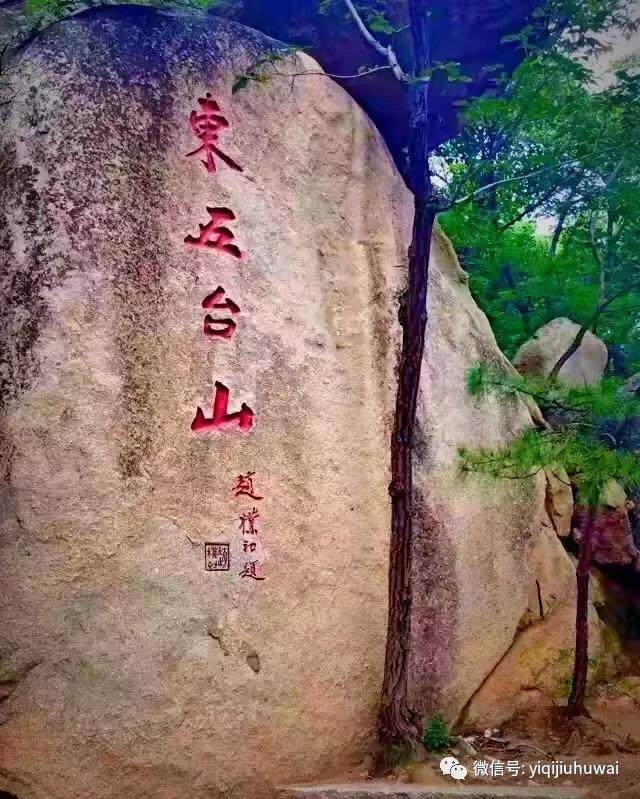 東五台山
趙樸初題
微信号: yiqijiuhuwai